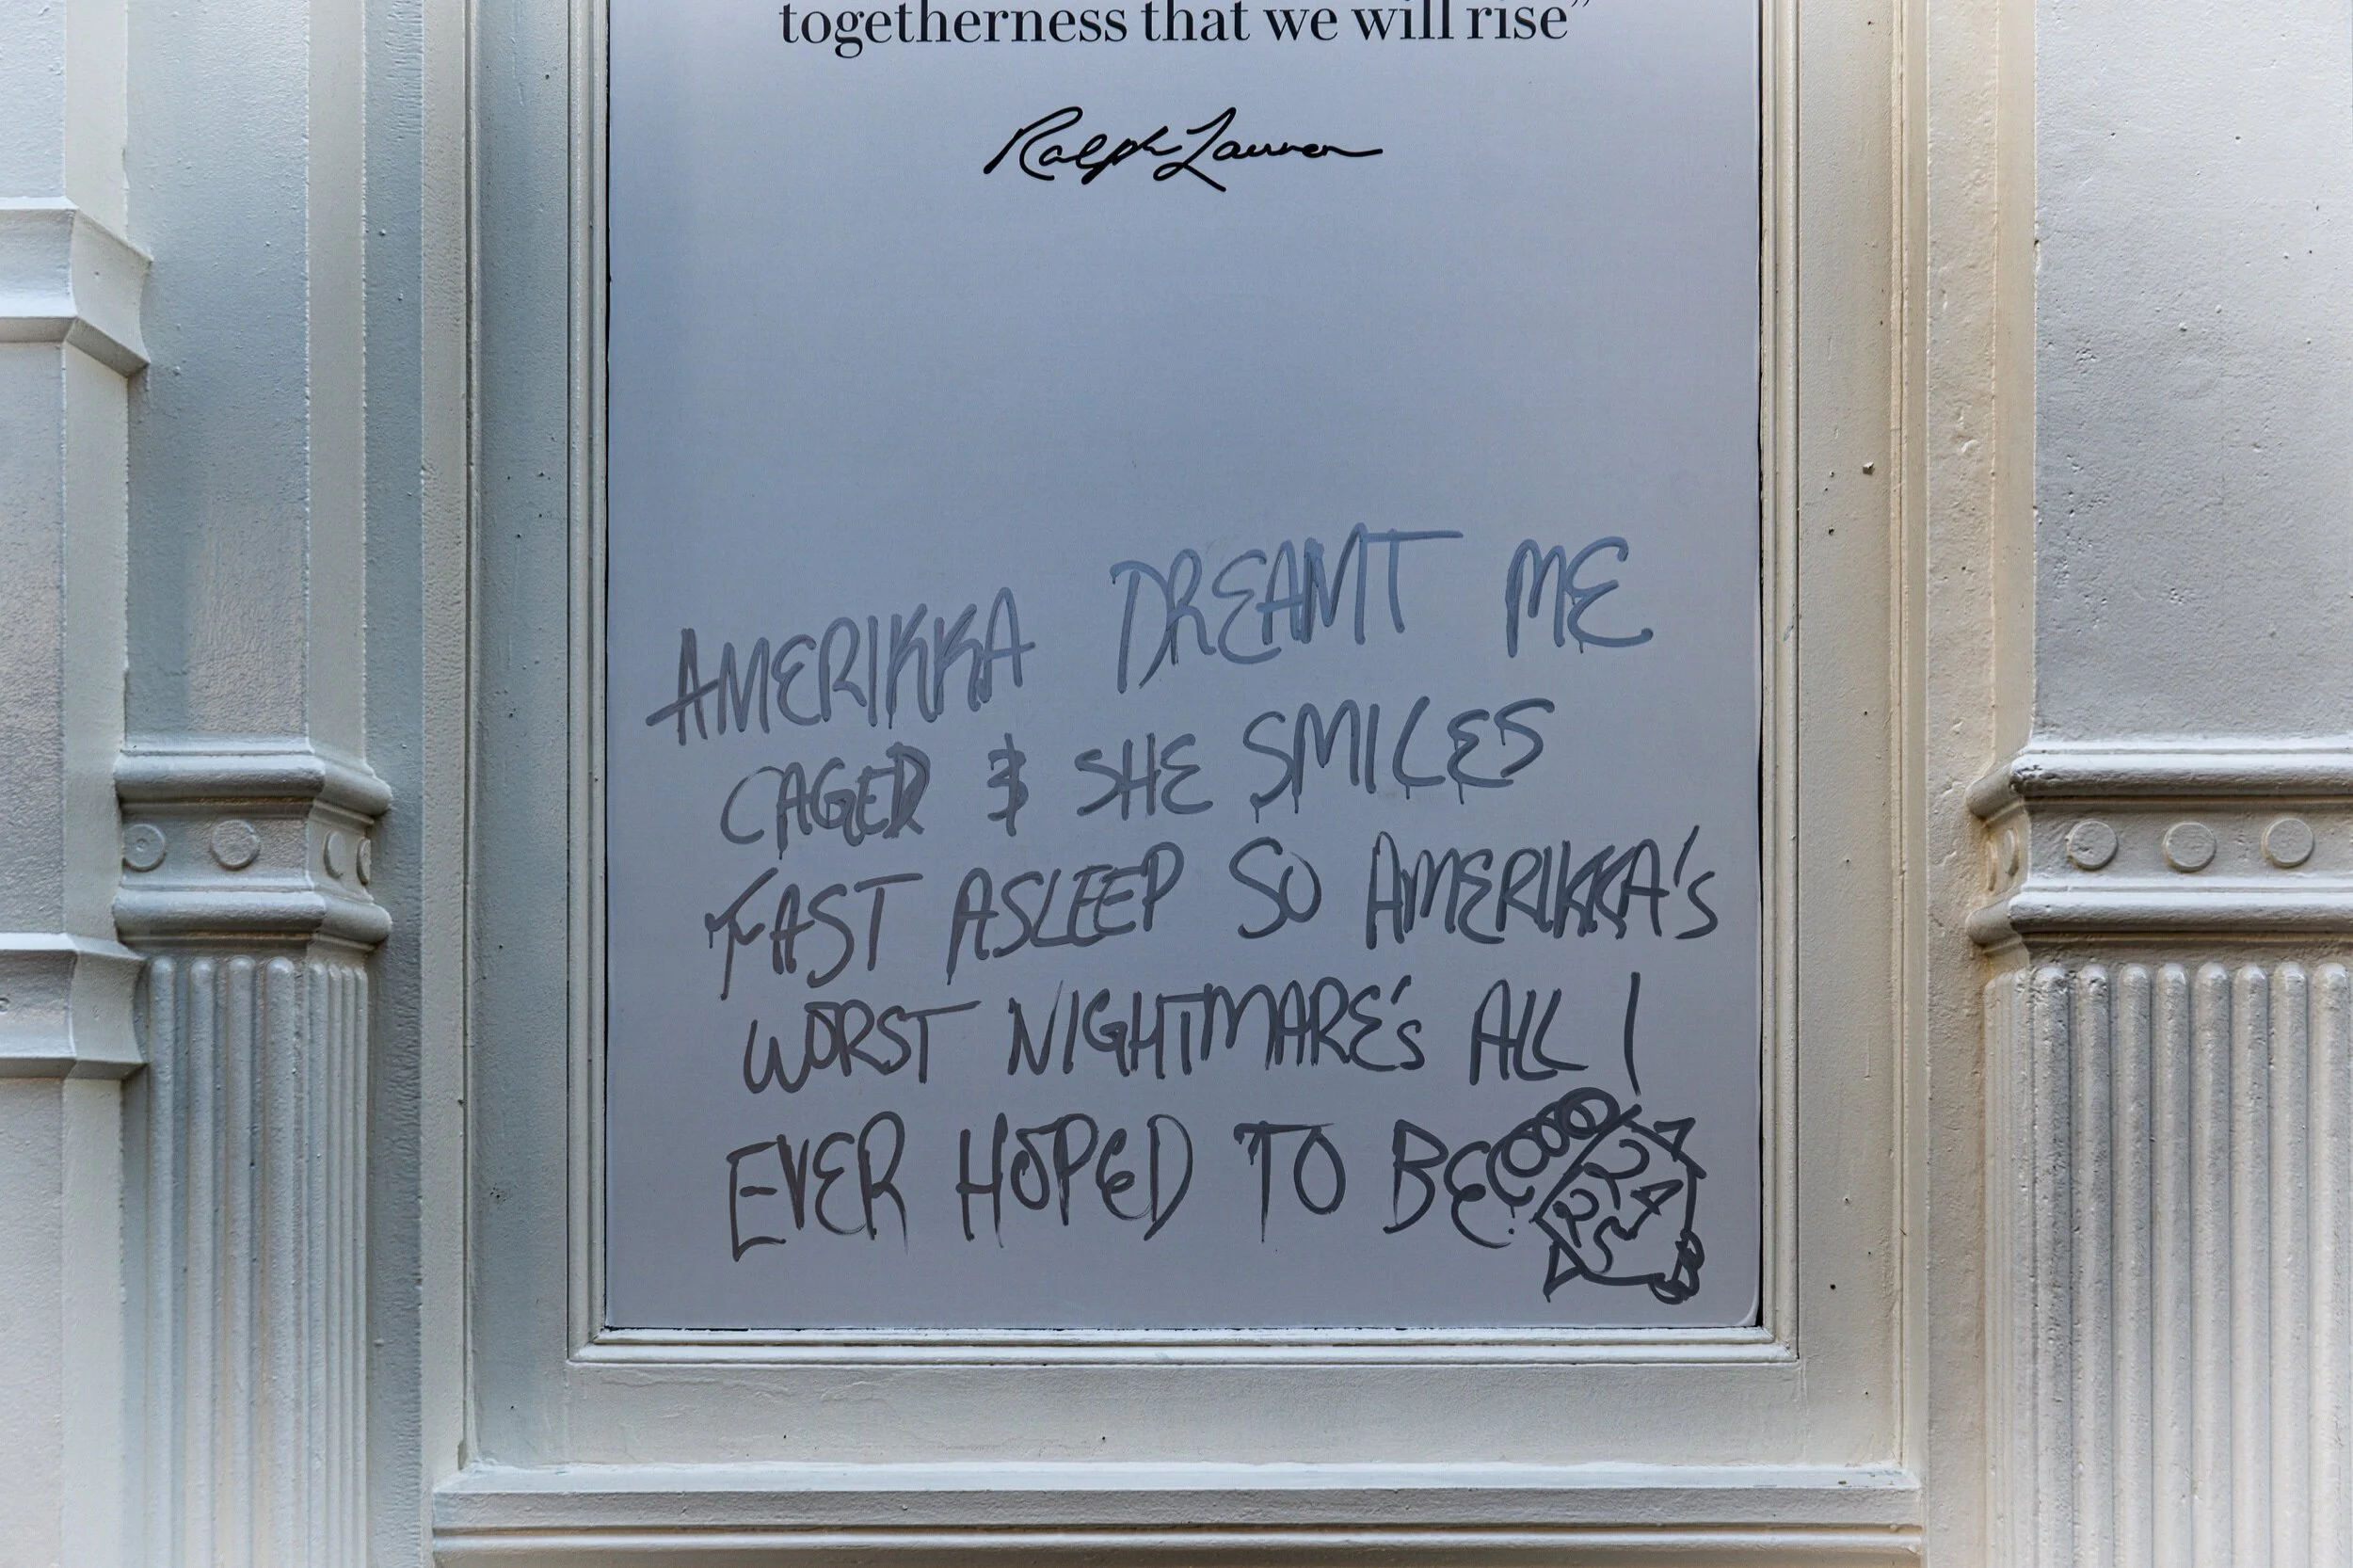 togetherness that we will rise”
Ralph Lauren
AMERIKKA DREAMT ME
CAGED & SHE SMILES
FAST ASLEEP SO AMERIKKA'S
WORST NIGHTMARE'S ALL I
EVER HOPED TO BE